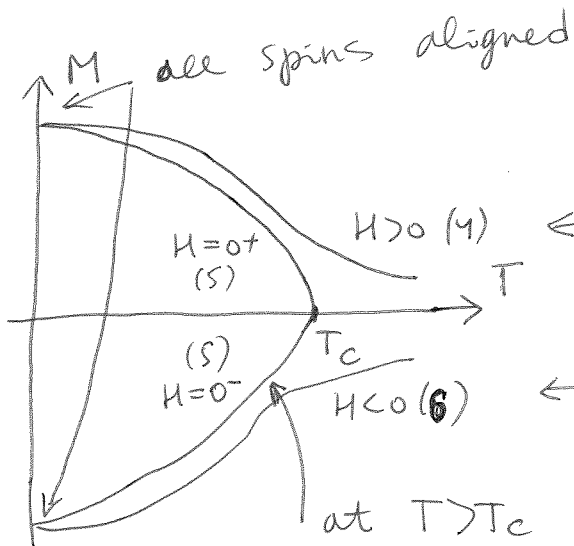 M all spins aligned
H>0 (4) ⇐
H=0+
(5)
T
Tc
(5)
H=0-
H<0 (6) ←
at T>Tc